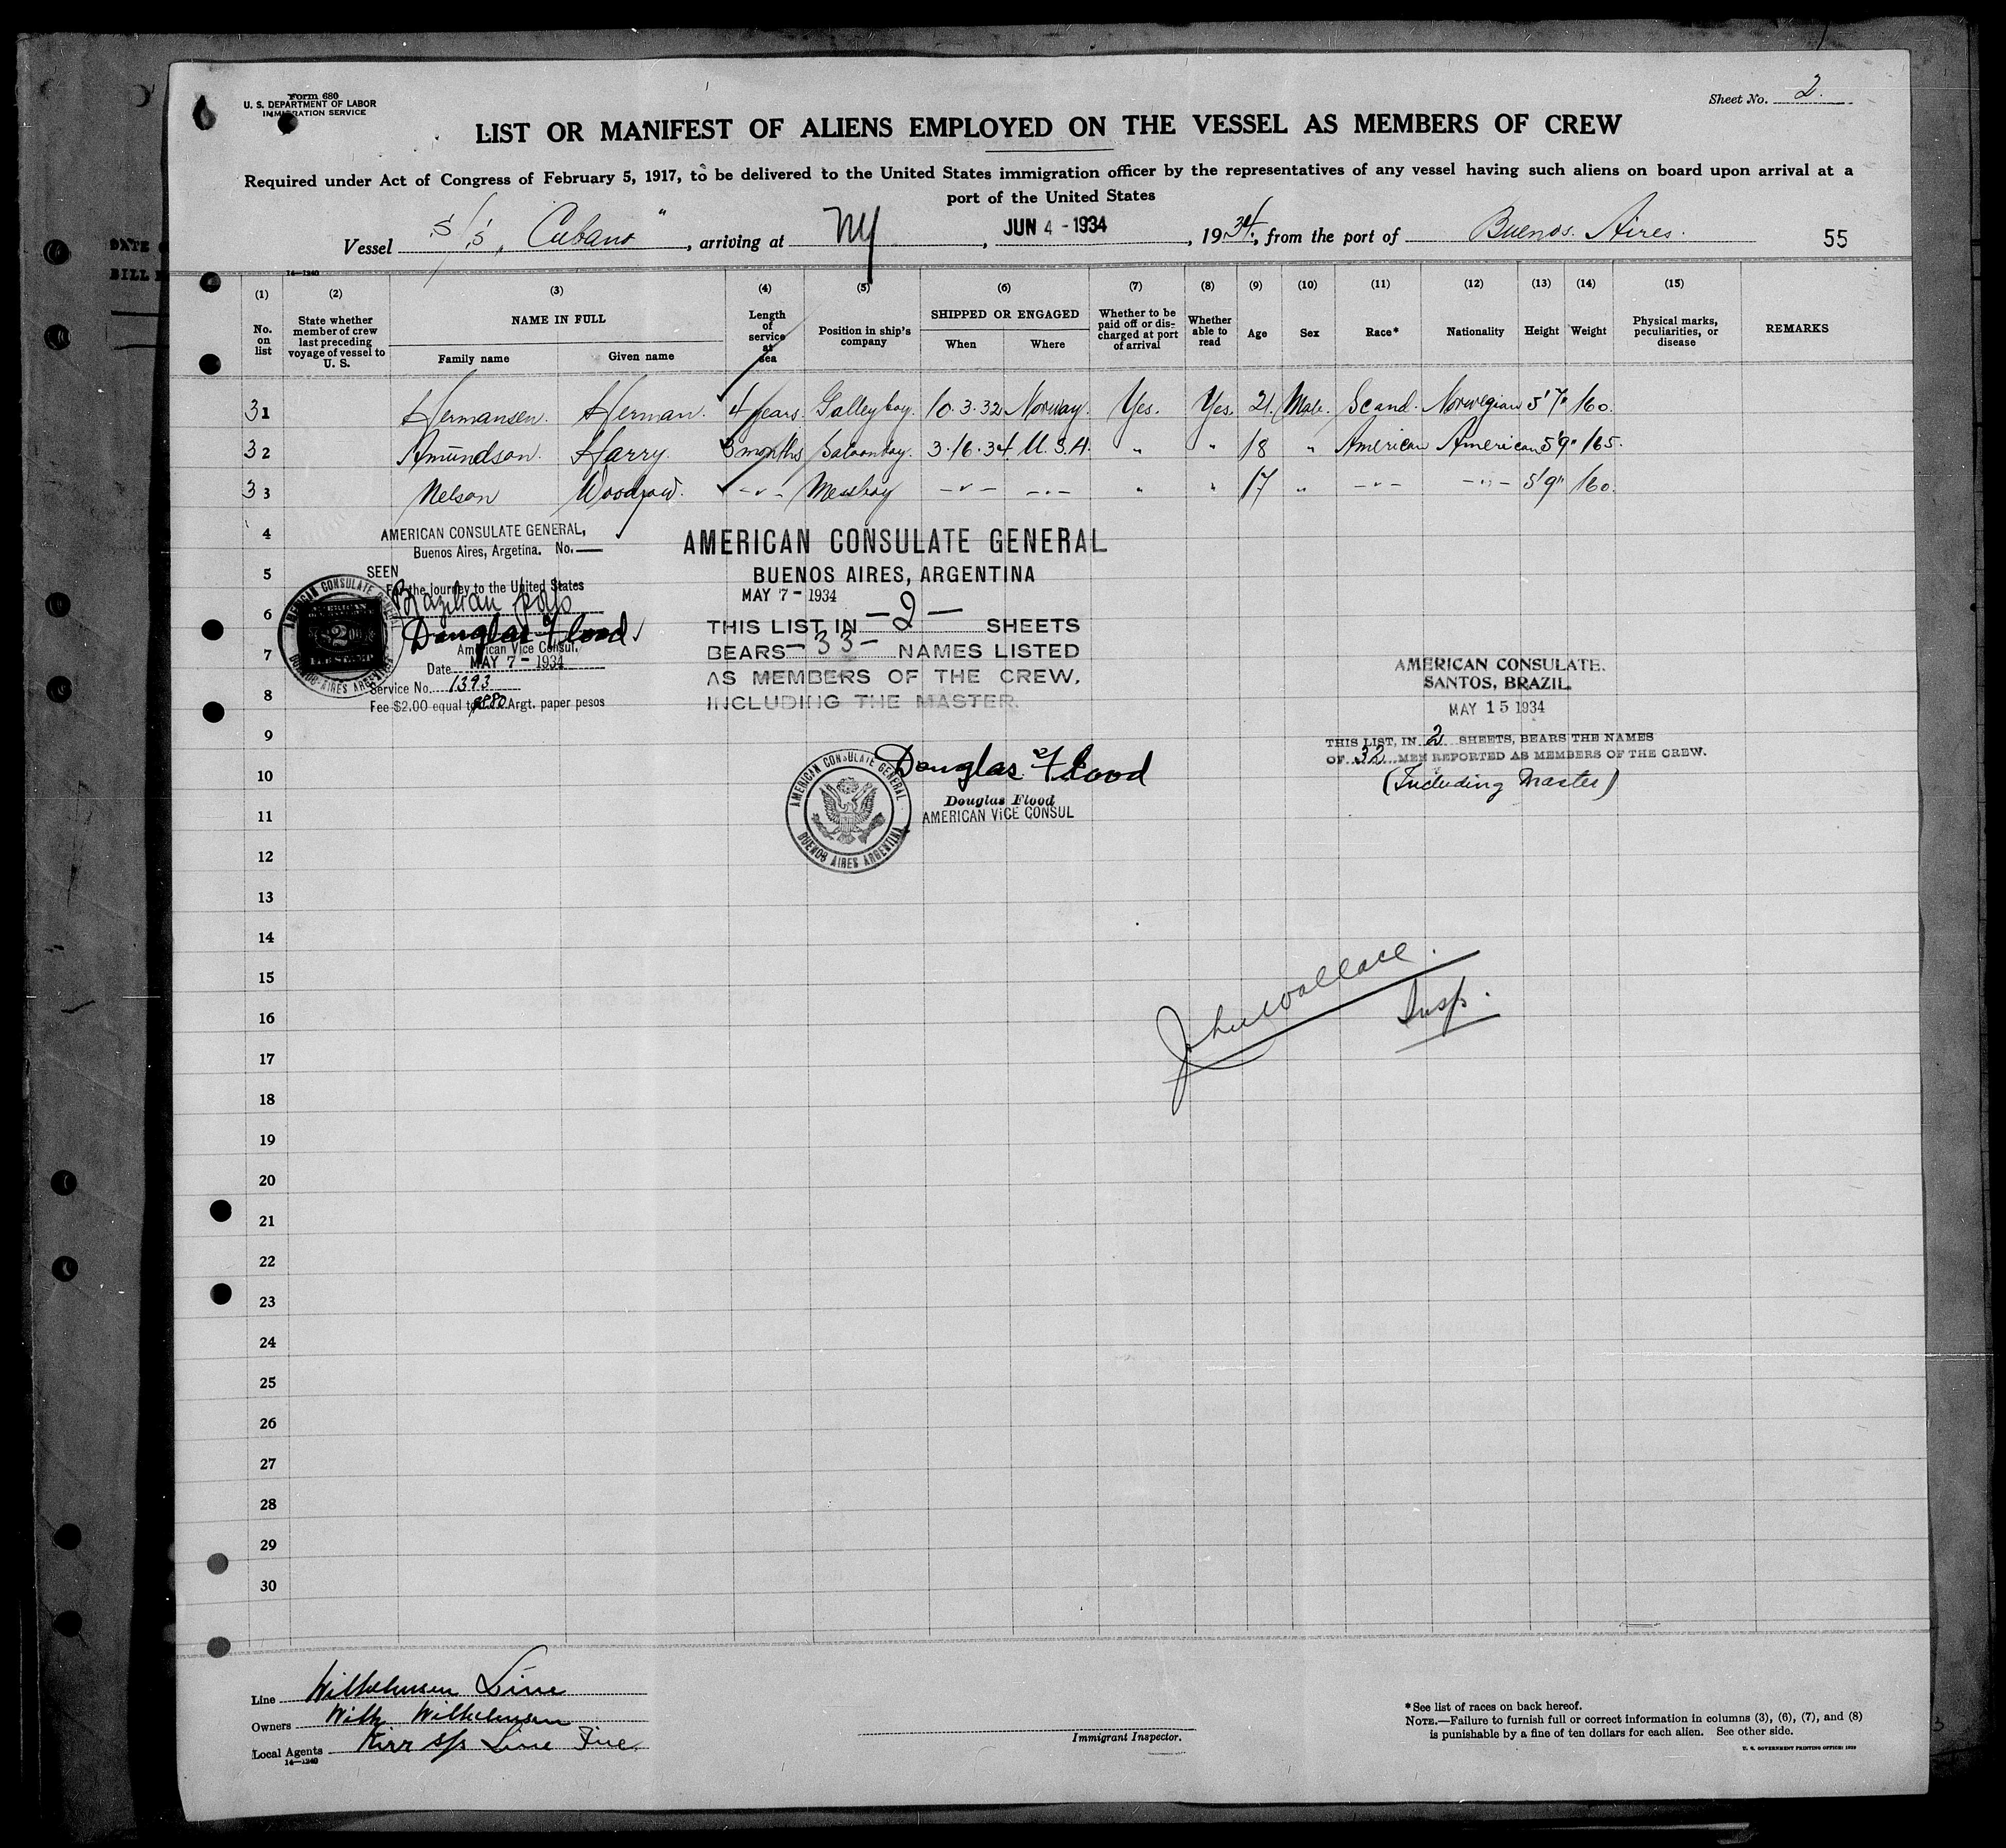 Form 680
U. S. DEPARTMENT OF LABOR
IMMIGRATION SERVICE
Sheet No. 2.
LIST OR MANIFEST OF ALIENS EMPLOYED ON THE VESSEL AS MEMBERS OF CREW
Required under Act of Congress of February 5, 1917, to be delivered to the United States immigration officer by the representatives of any vessel having such aliens on board upon arrival at a
port of the United States
Vessel S/S "Cubano", arriving at NY, JUN 4 - 1934, 1934, from the port of Buenos Aires. 55
14—1240
(1) (2) (3) (4) (5) (6) (7) (8) (9) (10) (11) (12) (13) (14) (15)
No. on list
State whether member of crew last preceding voyage of vessel to U. S.
NAME IN FULL
Family name
Given name
Length of service at sea
Position in ship's company
SHIPPED OR ENGAGED
When
Where
Whether to be paid off or discharged at port of arrival
Whether able to read
Age
Sex
Race*
Nationality
Height
Weight
Physical marks, peculiarities, or disease
REMARKS
31 Hermansen. Herman. 4 years. Galleyboy. 10.3.32 Norway. Yes. Yes. 21. Male. Scand. Norwegian 5'7" 160.
32 Amundson. Harry. 3 months Saloonboy. 3.16.34 U.S.A. " " 18 " American American 5'9" 165.
33 Nelson Woodrow. -"- Messboy -"- -"- " " 17 " -"- -"- 5'9" 160.
4
5
6
7
8
9
10
11
12
13
14
15
16
17
18
19
20
21
22
23
24
25
26
27
28
29
30
AMERICAN CONSULATE GENERAL,
Buenos Aires, Argetina. No. —
SEEN
For the journey to the United States
Brazilian
Douglas Flood
American Vice Consul.
Date MAY 7 - 1934
Service No. 1393
Fee $2.00 equal to Argt. paper pesos
AMERICAN CONSULATE GENERAL
BUENOS AIRES ARGENTINA
AMERICAN CONSULATE GENERAL
BUENOS AIRES, ARGENTINA
MAY 7 - 1934
THIS LIST IN -2- SHEETS
BEARS -33- NAMES LISTED
AS MEMBERS OF THE CREW,
INCLUDING THE MASTER.
Douglas Flood
Douglas Flood
AMERICAN VICE CONSUL
AMERICAN CONSULATE GENERAL
BUENOS AIRES ARGENTINA
AMERICAN CONSULATE.
SANTOS, BRAZIL.
MAY 15 1934
THIS LIST, IN 2 SHEETS, BEARS THE NAMES
OF 32 MEN REPORTED AS MEMBERS OF THE CREW.
(Including Master)
John Wallace.
Insp.
Line Wilhelmsen Line
Owners Wilh Wilhelmsen
Local Agents Kerr S/S Line Inc.
14—1240
Immigrant Inspector.
* See list of races on back hereof.
NOTE.—Failure to furnish full or correct information in columns (3), (6), (7), and (8)
is punishable by a fine of ten dollars for each alien. See other side.